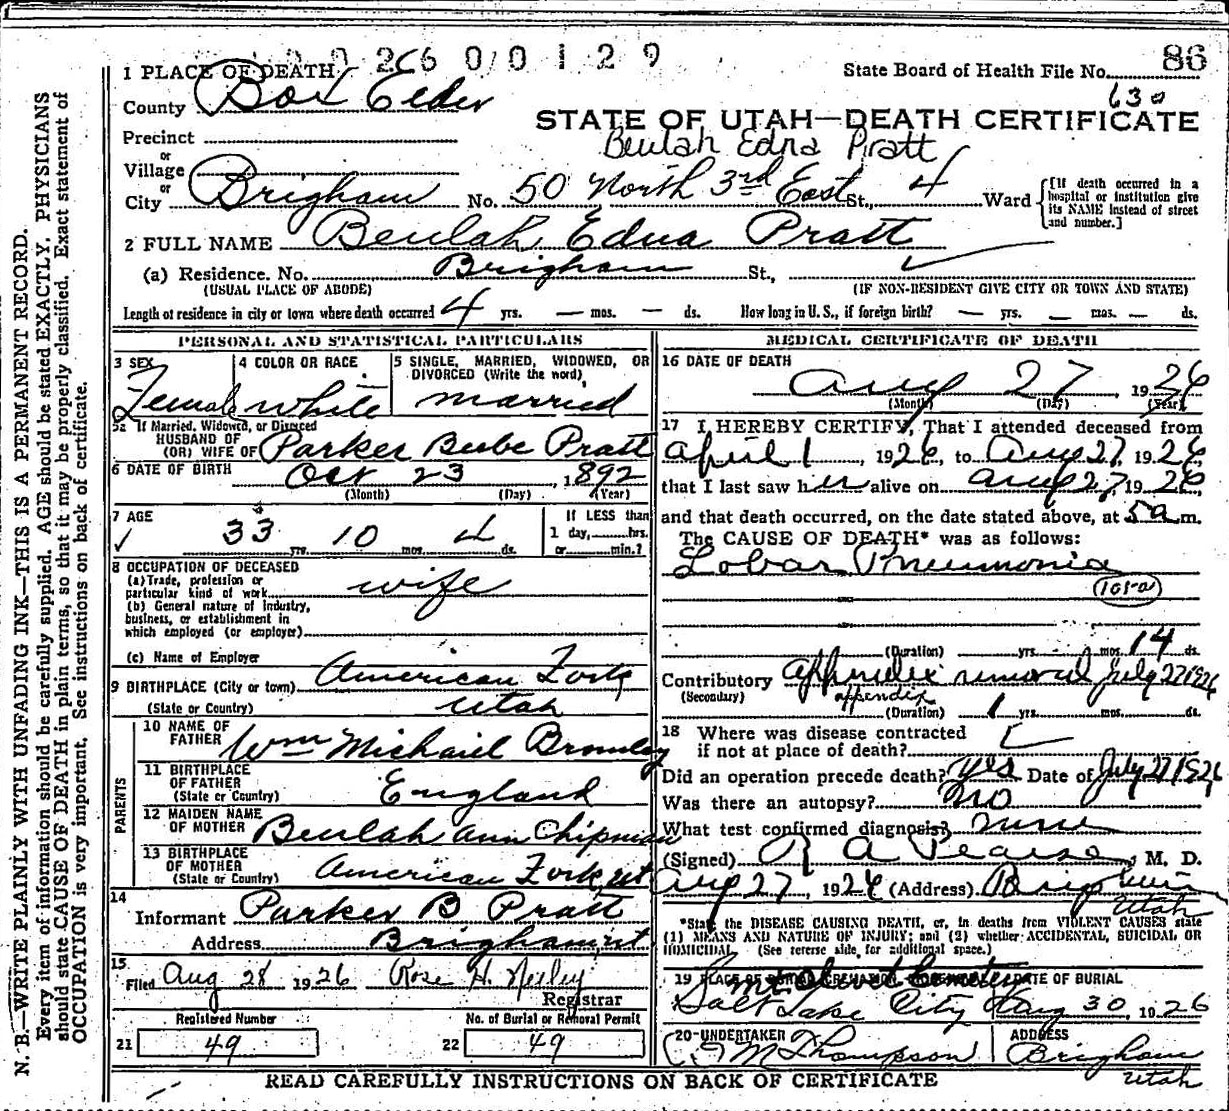 2600129
86
1 PLACE OF DEATH
State Board of Health File No.
630
County Box Elder
STATE OF UTAH—DEATH CERTIFICATE
Precinct
Beulah Edna Pratt
or
Village
or
City Brigham No. 50 North 3rd East St., 4 Ward
[If death occurred in a
hospital or institution give
its NAME instead of street
and number.]
2 FULL NAME Beulah Edna Pratt
(a) Residence. No. Brigham St.,
(USUAL PLACE OF ABODE) (IF NON-RESIDENT GIVE CITY OR TOWN AND STATE)
Length of residence in city or town where death occurred 4 yrs. — mos. — ds. How long in U. S., if foreign birth? — yrs. — mos. — ds.
PERSONAL AND STATISTICAL PARTICULARS
3 SEX
Female
4 COLOR OR RACE
white
5 SINGLE, MARRIED, WIDOWED, OR
DIVORCED (Write the word)
married
5a If Married, Widowed, or Divorced
HUSBAND OF
(OR) WIFE OF Parker Bebe Pratt
6 DATE OF BIRTH Oct 23, 1892
(Month) (Day) (Year)
7 AGE
33 yrs. 10 mos. 4 ds.
If LESS than
1 day, hrs.
or min.?
8 OCCUPATION OF DECEASED
(a) Trade, profession or
particular kind of work wife
(b) General nature of Industry,
business, or establishment in
which employed (or employer)
(c) Name of Employer
9 BIRTHPLACE (City or town) American Fork
(State or Country) Utah
PARENTS
10 NAME OF
FATHER Wm Michael Bromley
11 BIRTHPLACE
OF FATHER
(State or Country) England
12 MAIDEN NAME
OF MOTHER Beulah Ann Chipman
13 BIRTHPLACE
OF MOTHER
(State or Country) American Fork, Ut
14
Informant Parker B Pratt
Address Brigham, ut
15
Filed Aug 28 1926 Rose H.
Registrar
Registered Number No. of Burial or Removal Permit
21 49 22 49
MEDICAL CERTIFICATE OF DEATH
16 DATE OF DEATH
Aug 27, 1926
(Month) (Day) (Year)
17 I HEREBY CERTIFY, That I attended deceased from
April 1, 1926, to Aug 27, 1926
that I last saw her alive on Aug 27, 1926
and that death occurred, on the date stated above, at 5 a m.
The CAUSE OF DEATH* was as follows:
Lobar Pneumonia
101-a
(Duration) yrs. mos. 14 ds.
Contributory Appendix removal July 27 1926
(Secondary) appendix
(Duration) 1 yrs. mos. ds.
18 Where was disease contracted
if not at place of death?
Did an operation precede death? Yes Date of July 27 1926
Was there an autopsy? No
What test confirmed diagnosis? none
(Signed) R A Pearse, M. D.
Aug 27, 1926 (Address) Brigham
Utah
*State the DISEASE CAUSING DEATH, or, in deaths from VIOLENT CAUSES state
(1) MEANS AND NATURE OF INJURY; and (2) whether ACCIDENTAL, SUICIDAL OR
HOMICIDAL. (See reverse side for additional space.)
19 PLACE OF BURIAL, CREMATION DATE OF BURIAL
Salt Lake City Aug 30, 1926
20 UNDERTAKER ADDRESS
M Thompson Brigham
Utah
READ CAREFULLY INSTRUCTIONS ON BACK OF CERTIFICATE
N. B.—WRITE PLAINLY WITH UNFADING INK—THIS IS A PERMANENT RECORD.
Every item of information should be carefully supplied. AGE should be stated EXACTLY. PHYSICIANS
should state CAUSE OF DEATH in plain terms, so that it may be properly classified. Exact statement of
OCCUPATION is very important. See instructions on back of certificate.